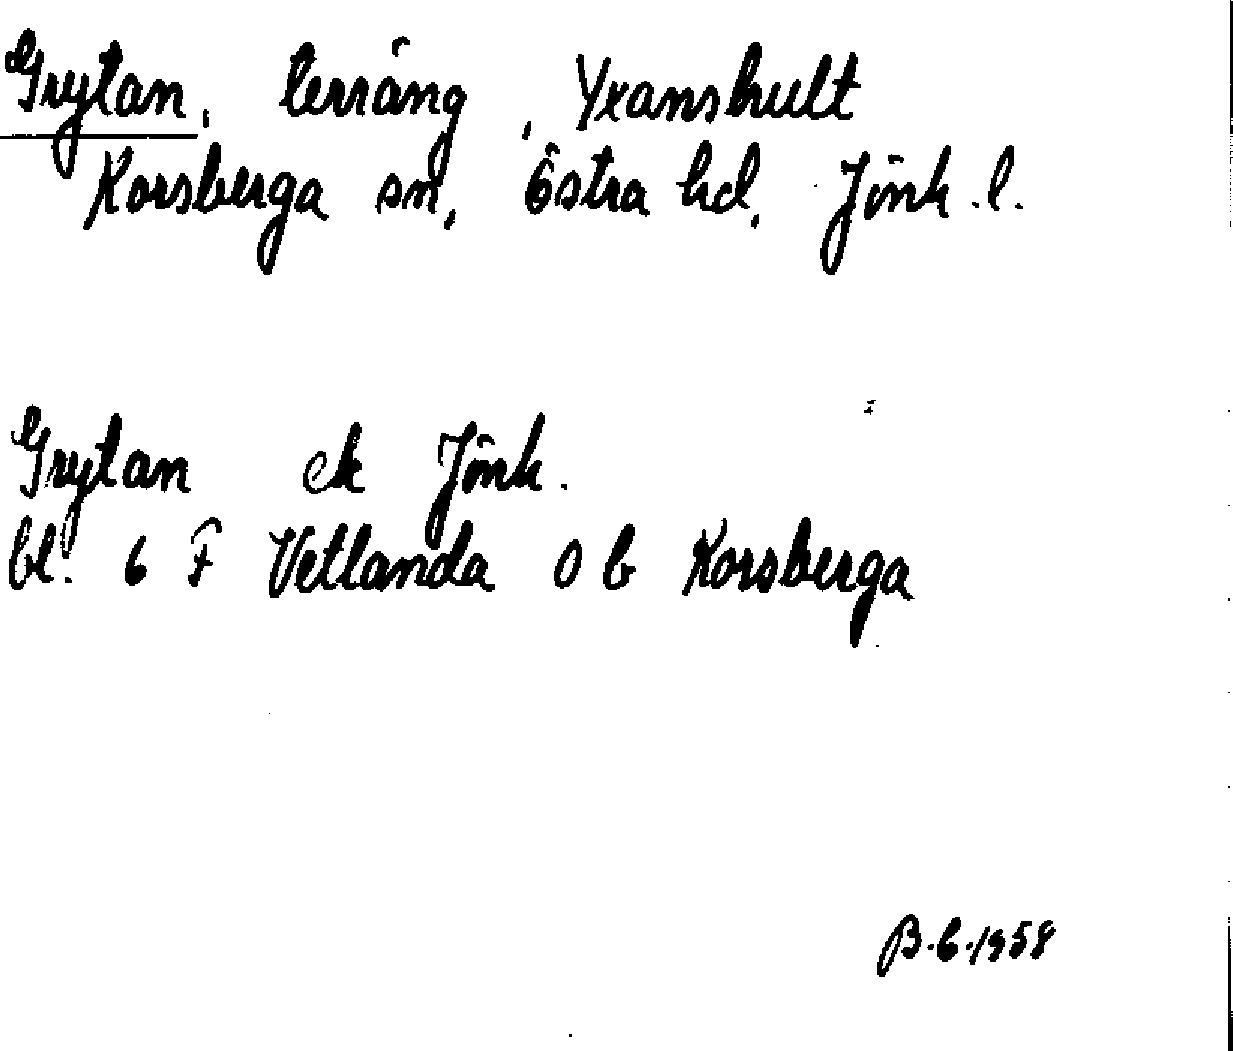 Grytan, terräng, Yxanshult
Korsberga sn, Östra hd, Jönk. l.
Grytan ek Jönk.
bl. 6 F Vetlanda 0 b Korsberga
B.C. 1958